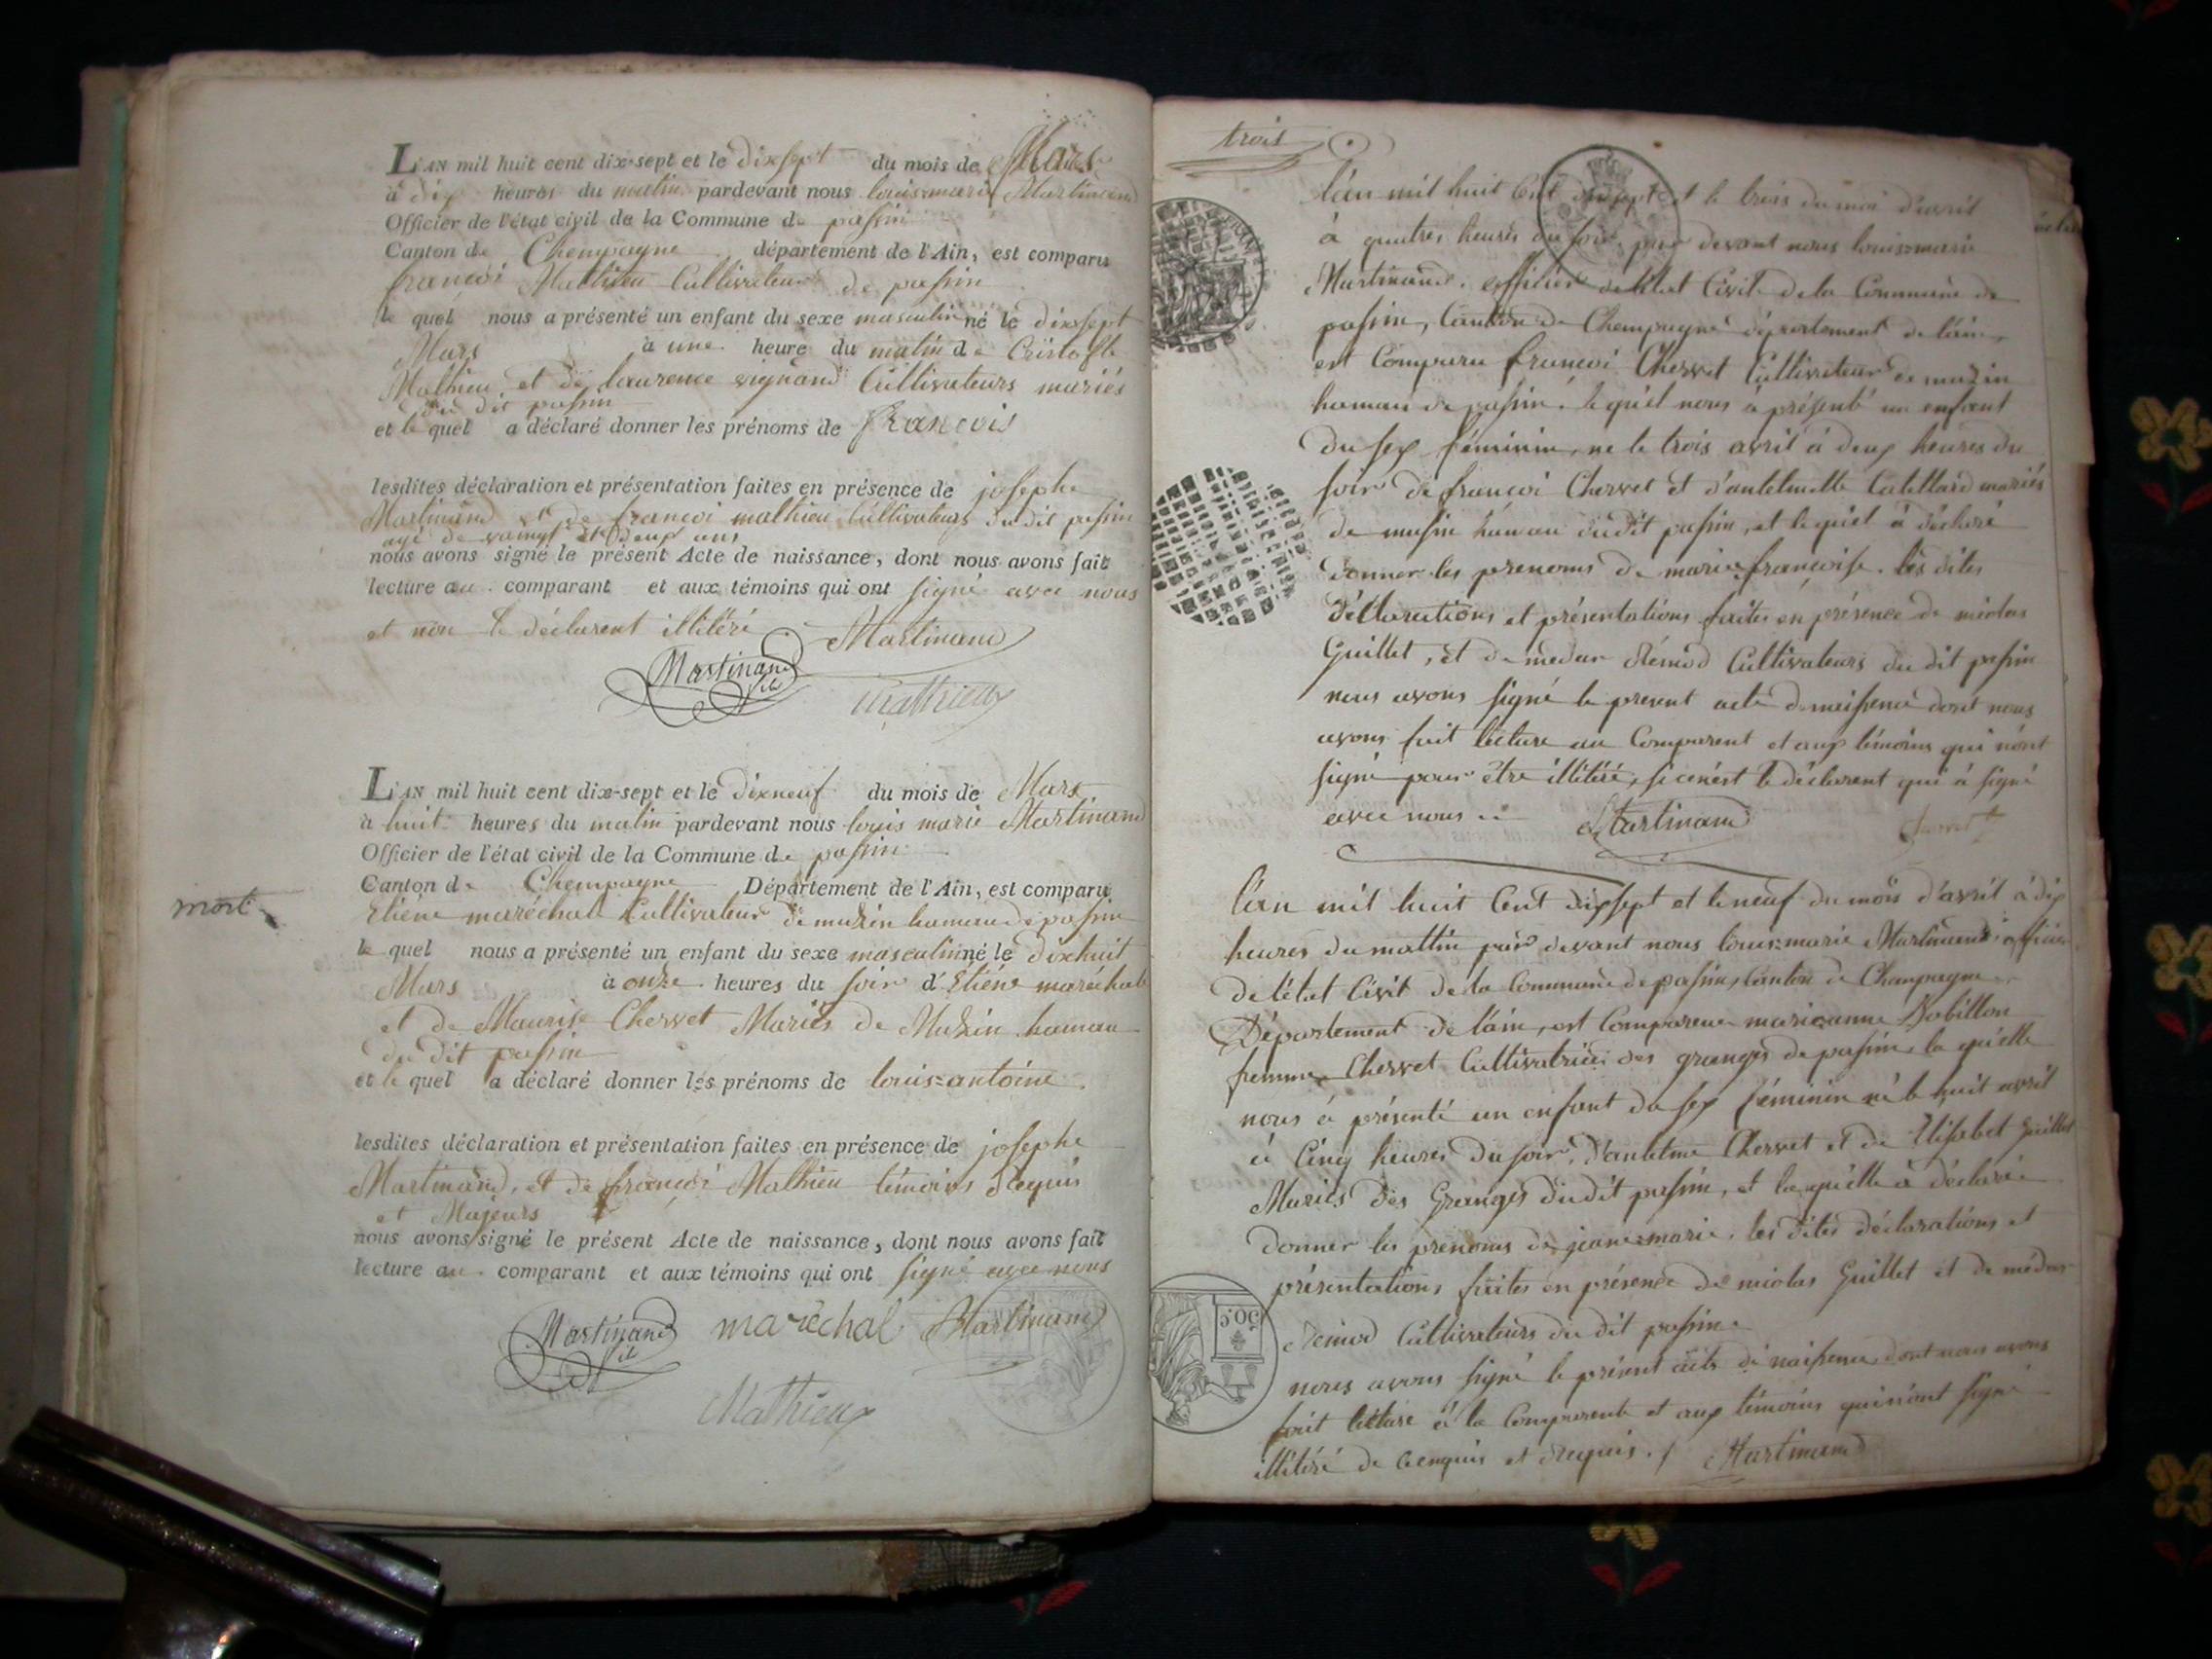 L'AN mil huit cent dix-sept et le dixsept du mois de Mars
à dix heures du matin pardevant nous louis marie Martinand
Officier de l'état civil de la Commune de passin
Canton de Chempagne département de l'Ain, est comparu
françoi Mathieu Cultivateur de passin
le quel nous a présenté un enfant du sexe masculin né le dixsept
Mars à une heure du matin de Cristofle
Mathieu et de laurence vignand Cultivateurs mariés
du dit passin
et le quel a déclaré donner les prénoms de francois
lesdites déclaration et présentation faites en présence de josephe
Martinand et de françoi mathieu Cultivateurs du dit passin
agé de vaingt et deux ans
nous avons signé le présent Acte de naissance, dont nous avons fait
lecture au comparant et aux témoins qui ont signé avec nous
et non le déclarent illitéré Martinand
Martinand fils
Mathieu
L'AN mil huit cent dix-sept et le dixneuf du mois de Mars
à huit heures du matin pardevant nous louis marie Martinand
Officier de l'état civil de la Commune de passin
Canton de Chempagne Département de l'Ain, est comparu
mort
Etiéne maréchal Cultivateur de muzin hameau de passin
le quel nous a présenté un enfant du sexe masculin né le dixhuit
Mars à onze heures du soir d'Etiéne maréchal
et de Maurise Chervet Mariés de Muzin hamau
du dit passin
et le quel a déclaré donner les prénoms de louis=antoine
lesdites déclaration et présentation faites en présence de josephe
Martinand, et de françoi Mathieu témoins requis
et Majeurs
nous avons signé le présent Acte de naissance, dont nous avons fait
lecture au comparant et aux témoins qui ont signé avec nous
Martinand fils maréchal Martinand
Mathieu
trois
l'an mil huit Cent dixsept et le trois du moi d'avril
à quatres heures du soir, par devant nous louis=marie
Martinand, officier de l'état Civil de la Commune de
passin, Canton de Chempagne département de l'ain,
est Comparu françoi Chervet Cultivateur de muzin
hamau de passin. le quel nous à présenté un enfant
du sex féminin, ne le trois avril à deux heures du
soir de françoi Chervet et d'antelmette Catellard mariés
de musin hamau du dit passin, et le quel à déclaré
donner les prenoms de marie=françoise. les dites
déclarations et présentations faites en présence de nicolas
Guillet, et de medar Cultivateurs du dit passin
nous avons signé le present acte de naissence dont nous
avons fait lecture au Comparent et aux témoins qui n'ont
signé pour être illitéré, si cenest le déclarent qui à signé
avec nous Martinand Chervet
l'an mil huit Cent dixsept et le neuf du mois d'avril à dix
heures du mattin par devant nous louis=marie Martinand officier
de l'état Civil de la Commune de passin, Canton de Champagne
Département de l'ain, est Comparue marieanne
femme Chervet Cultivatrice des granges de passin, la quelle
nous à présenté un enfant du sex féminin né le huit avril
à Cinq heures du soir, d'antelme Chervet et de Elisabet Guillet
Mariés des Granges du dit passin, et la quelle à déclaré
donner les prenoms de jeane=marie. les dites déclarations et
présentations faites en présence de nicolas Guillet et de médar
Cultivateurs du dit passin
50C
nous avons signé le présent acte de naissence, dont nous avons
fait lecture à la Comparente et aux témoins qui n'ont signé
illitéré de ce enquis et requis. Martinand